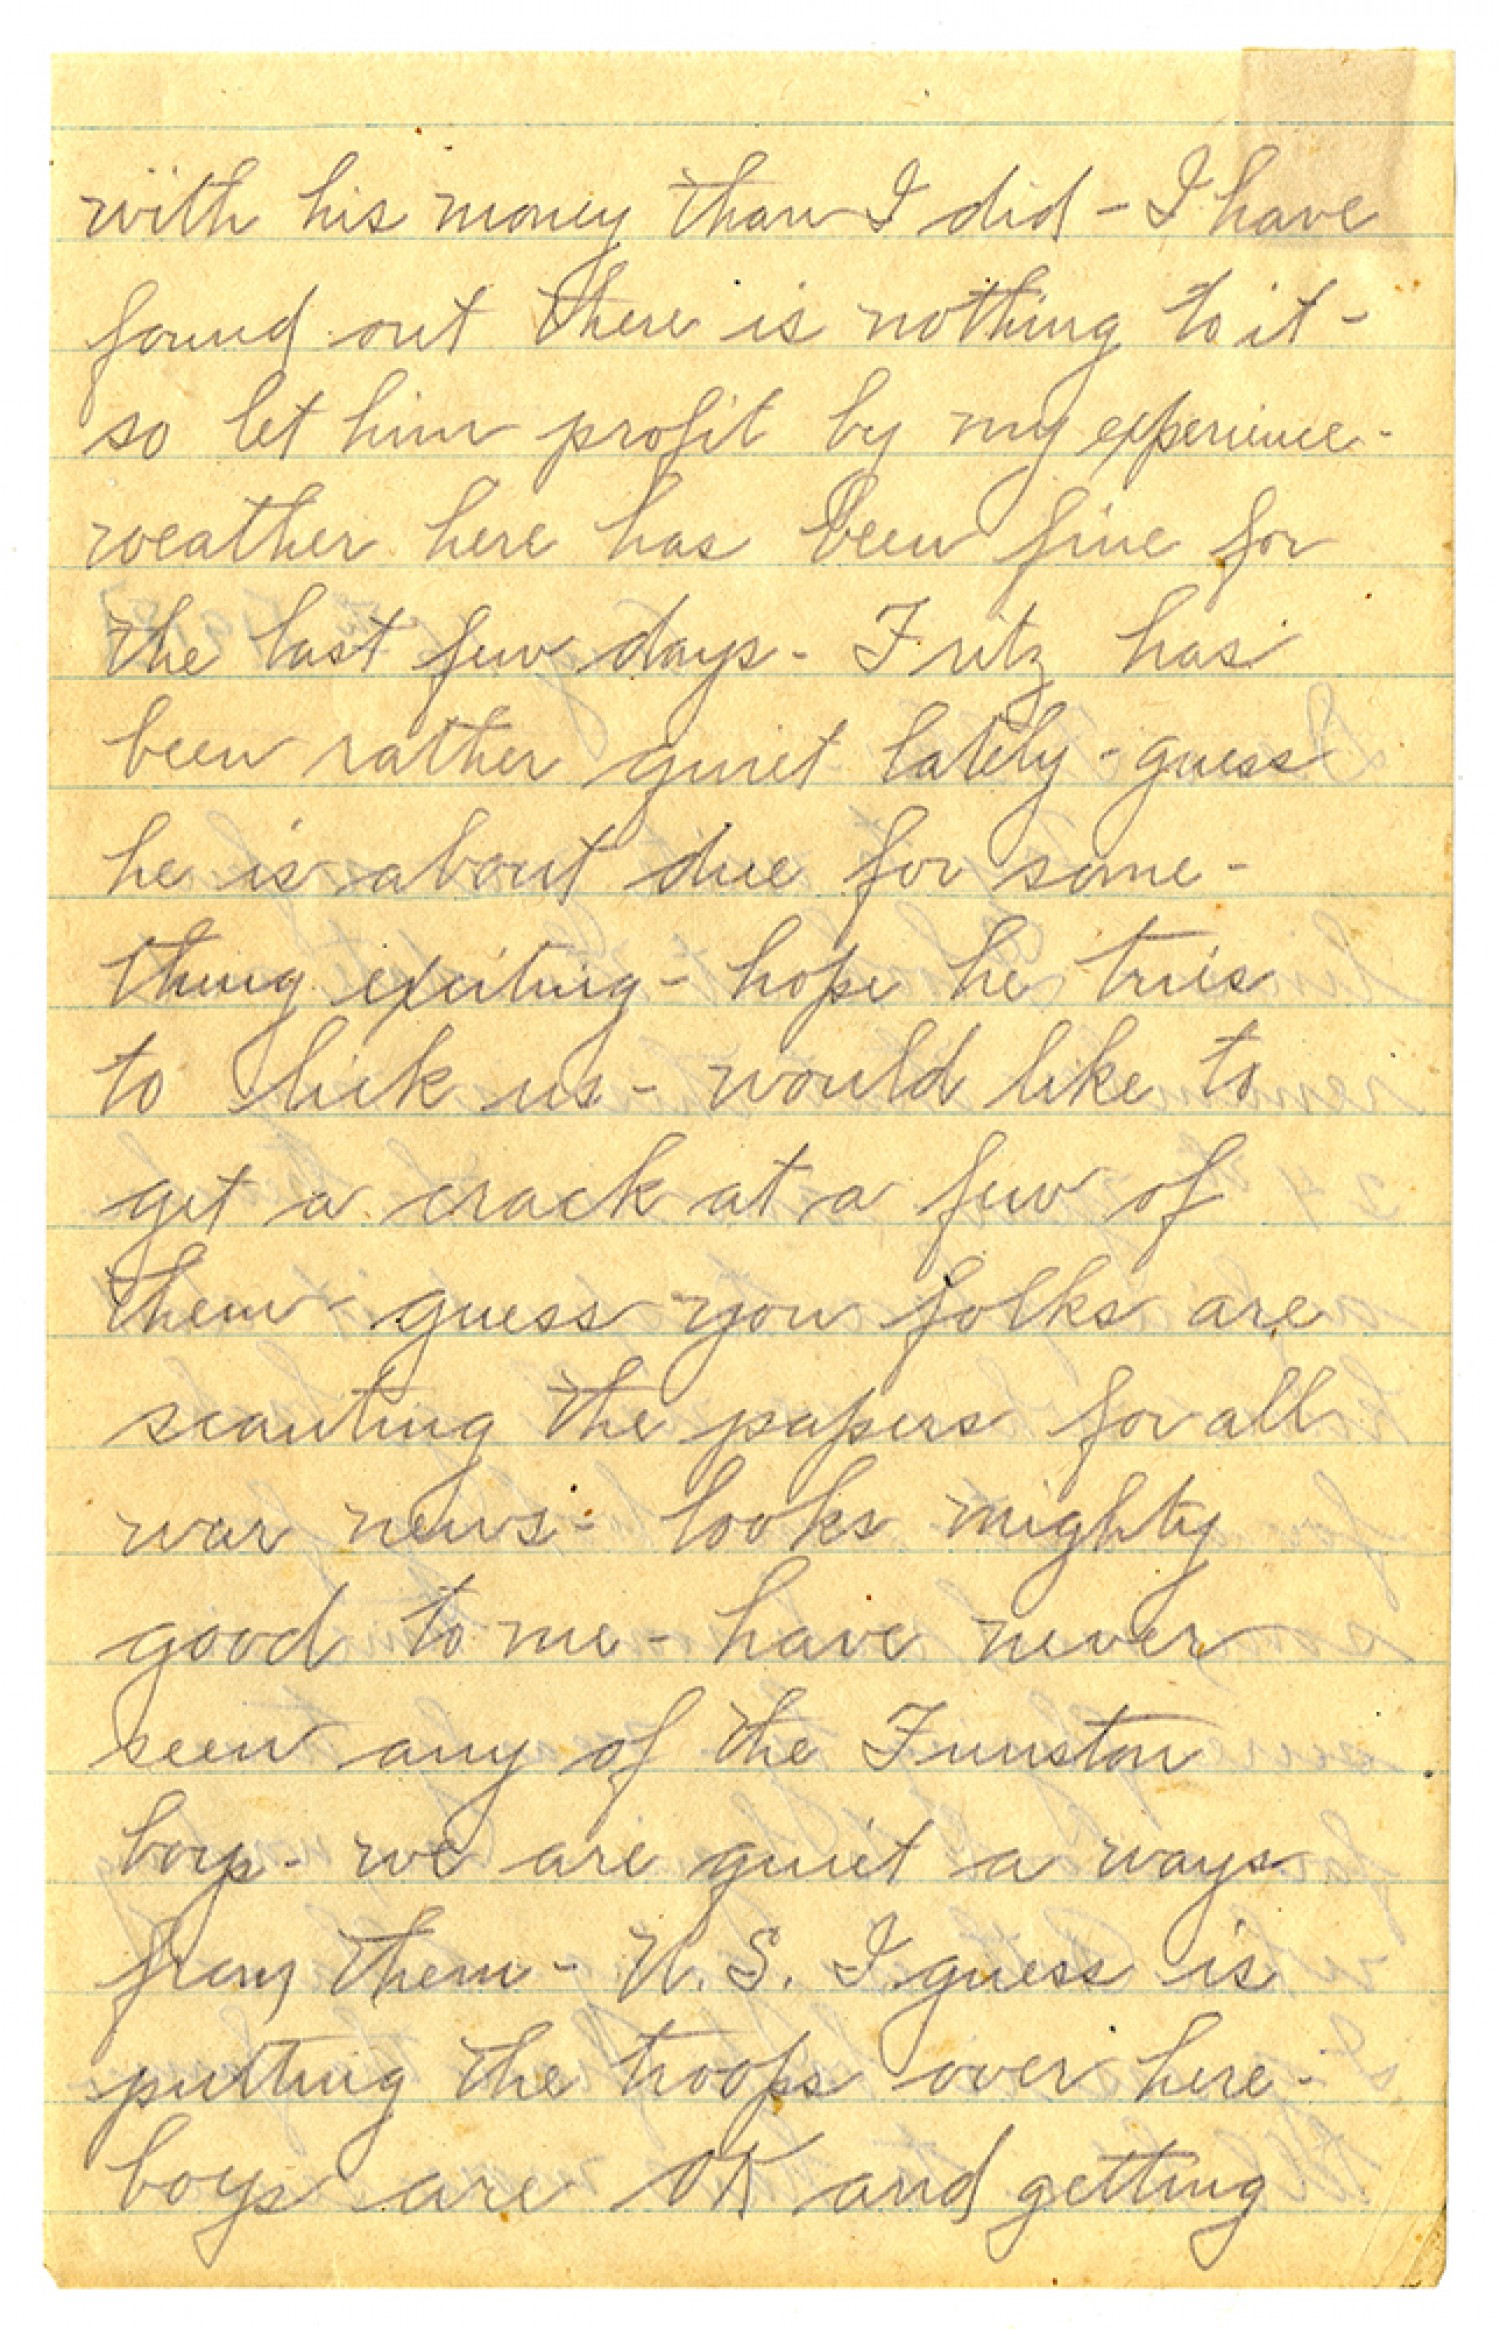 with his money than I did - I have
found out there is nothing to it -
so let him profit by my experience -
weather here has been fine for
the last few days - Fritz has
been rather quiet lately - guess
he is about due for some -
thing exciting - hope he tries
to lick us - would like to
get a crack at a few of
them - guess you folks are
scouting the papers for all
war news - looks mighty
good to me - have never
seen any of the Funston
boys - we are quiet a ways
from them - U.S. I guess is
putting the troops over here -
boys are OK and getting